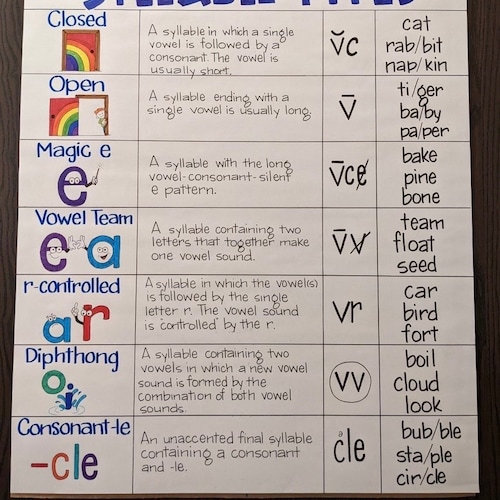 Closed
A syllable in which a single
vowel is followed by a
consonant. The vowel is
usually short.
v̆c
cat
rab/bit
nap/kin
Open
A syllable ending with a
single vowel is usually long.
v̄
ti/ger
ba/by
pa/per
Magic e
e
A syllable with the long
vowel-consonant-silent
e pattern.
v̄ce̸
bake
pine
bone
Vowel Team
e a
A syllable containing two
letters that together make
one vowel sound.
v̄v̸
team
float
seed
r-controlled
ar
A syllable in which the vowel(s)
is followed by the single
letter r. The vowel sound
is "controlled" by the r.
vr
car
bird
fort
Diphthong
oi
A syllable containing two
vowels in which a new vowel
sound is formed by the
combination of both vowel
sounds.
vv
boil
cloud
look
Consonant-le
-cle
An unaccented final syllable
containing a consonant
and -le.
cᵊle
bub/ble
sta/ple
cir/cle